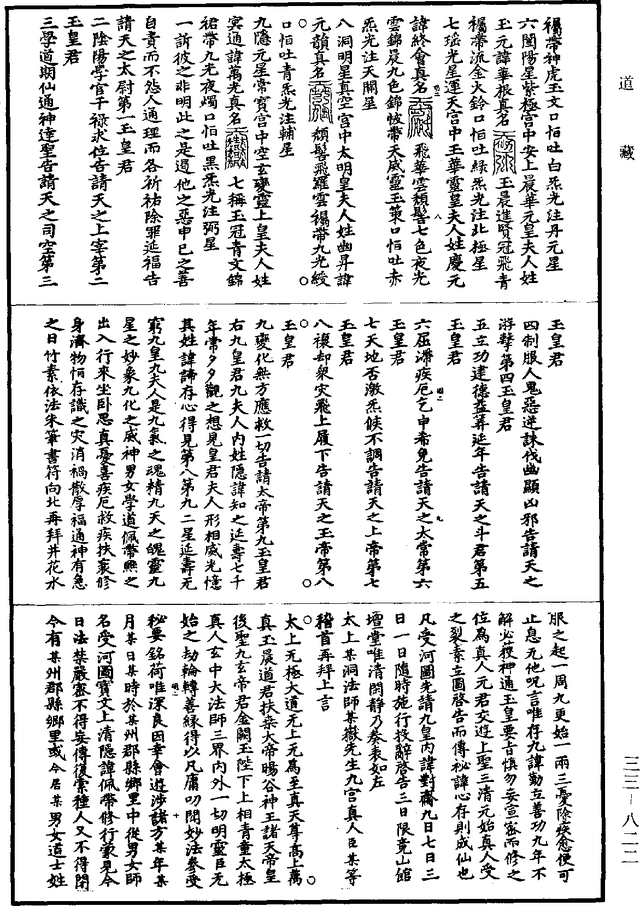 道藏
褐帶神虎玉文口恒吐白炁光注丹元星
六闓陽星紫極宮中安上晨華元皇夫人姓
玉元諱華根真名　玉晨進賢冠飛青
褐帶流金火鈴口恒吐綠炁光注北極星
七瑤光星運天宮中玉華靈皇夫人姓慶元
諱終會真名　飛華雲頹髻七色夜光
雲錦晨九色錦帔帶天威靈玉策口恒吐赤
炁光注天關星
八洞明星真空宮中太明皇夫人姓幽昇諱
元韻真名　頹髻飛羅雲褐帶九光綬
口恒吐青炁光注輔星
九隱元星常寶宮中空玄變靈上皇夫人姓
冥通諱萬光真名　七稱玉冠青文錦
裙帶九光夜燭口恒吐黑炁光注弼星
一訢彼之非明此之是過他之惡申已之善
自責而不怨人通理而各祈祐除罪延福告
請天之太尉第一玉皇君
二陰陽學官干祿求位告請天之上宰第二
玉皇君
三學道期仙通神達聖告請天之司空第三
玉皇君
四制服人鬼惡逆誅伐幽顯凶邪告請天之
游擊第四玉皇君
五立功建德益筭延年告請天之斗君第五
玉皇君
六屈滯疾厄乞申希免告請天之太常第六
玉皇君
七天地否激炁候不調告請天之上帝第七
玉皇君
八禳却衆灾飛上履下告請天之玉帝第八
玉皇君
九變化無方應救一切告請太帝第九玉皇君
右九皇君九夫人内姓隱諱知之延壽七千
年常夕夕觀之想見皇君夫人形相威光憶
其姓諱諦存心得見第八第九二星延壽无
窮九皇九夫人是九氣之魂精九天之魄靈九
星之妙象九化之威神男女學道佩帶無之
出入行來坐卧思真憂喜疾厄救疾扶衰修
身濟物恒存識之灾消禍散厚福通神有急
之日竹素依法朱筆書符向北再拜井花水
服之起一周九更始一兩三憂除疾愈便可
止息无他呪言唯存九諱勤立善功九年不
解必役神通玉皇要言慎勿妄宣密而修之
位爲真人元君交遊上聖三清元始真人受
之裂素立圖啓告而傳祕諱心存則成仙也
凡受河圖先請九皇内諱對齋九日七日三
日一日隨時施行投辭啓告三日限竟山館
壇堂唯清閑靜乃奏表如左
太上某洞法師某嶽先生九宮真人臣某等
稽首再拜上言
太上无極大道无上元爲至真天尊高上萬
真玉晨道君扶桒太帝暘谷神王諸天帝皇
後聖九玄帝君金闕玉陛下上相青童太極
真人玄中大法師三界内外一切明靈臣无
始之劫輪轉善緣得以凡庸叨聞妙法參受
秘要銘荷唯深良因幸會遊涉諸方某年某
月某日某時於某州郡縣鄉里中從男女師
名受河圖寶文上清隱諱佩帶修行蒙見今
日法禁嚴密不得妄傳復索種人又不得閉
今有某州郡縣鄉里或今居某男女道士姓
三三－八二二